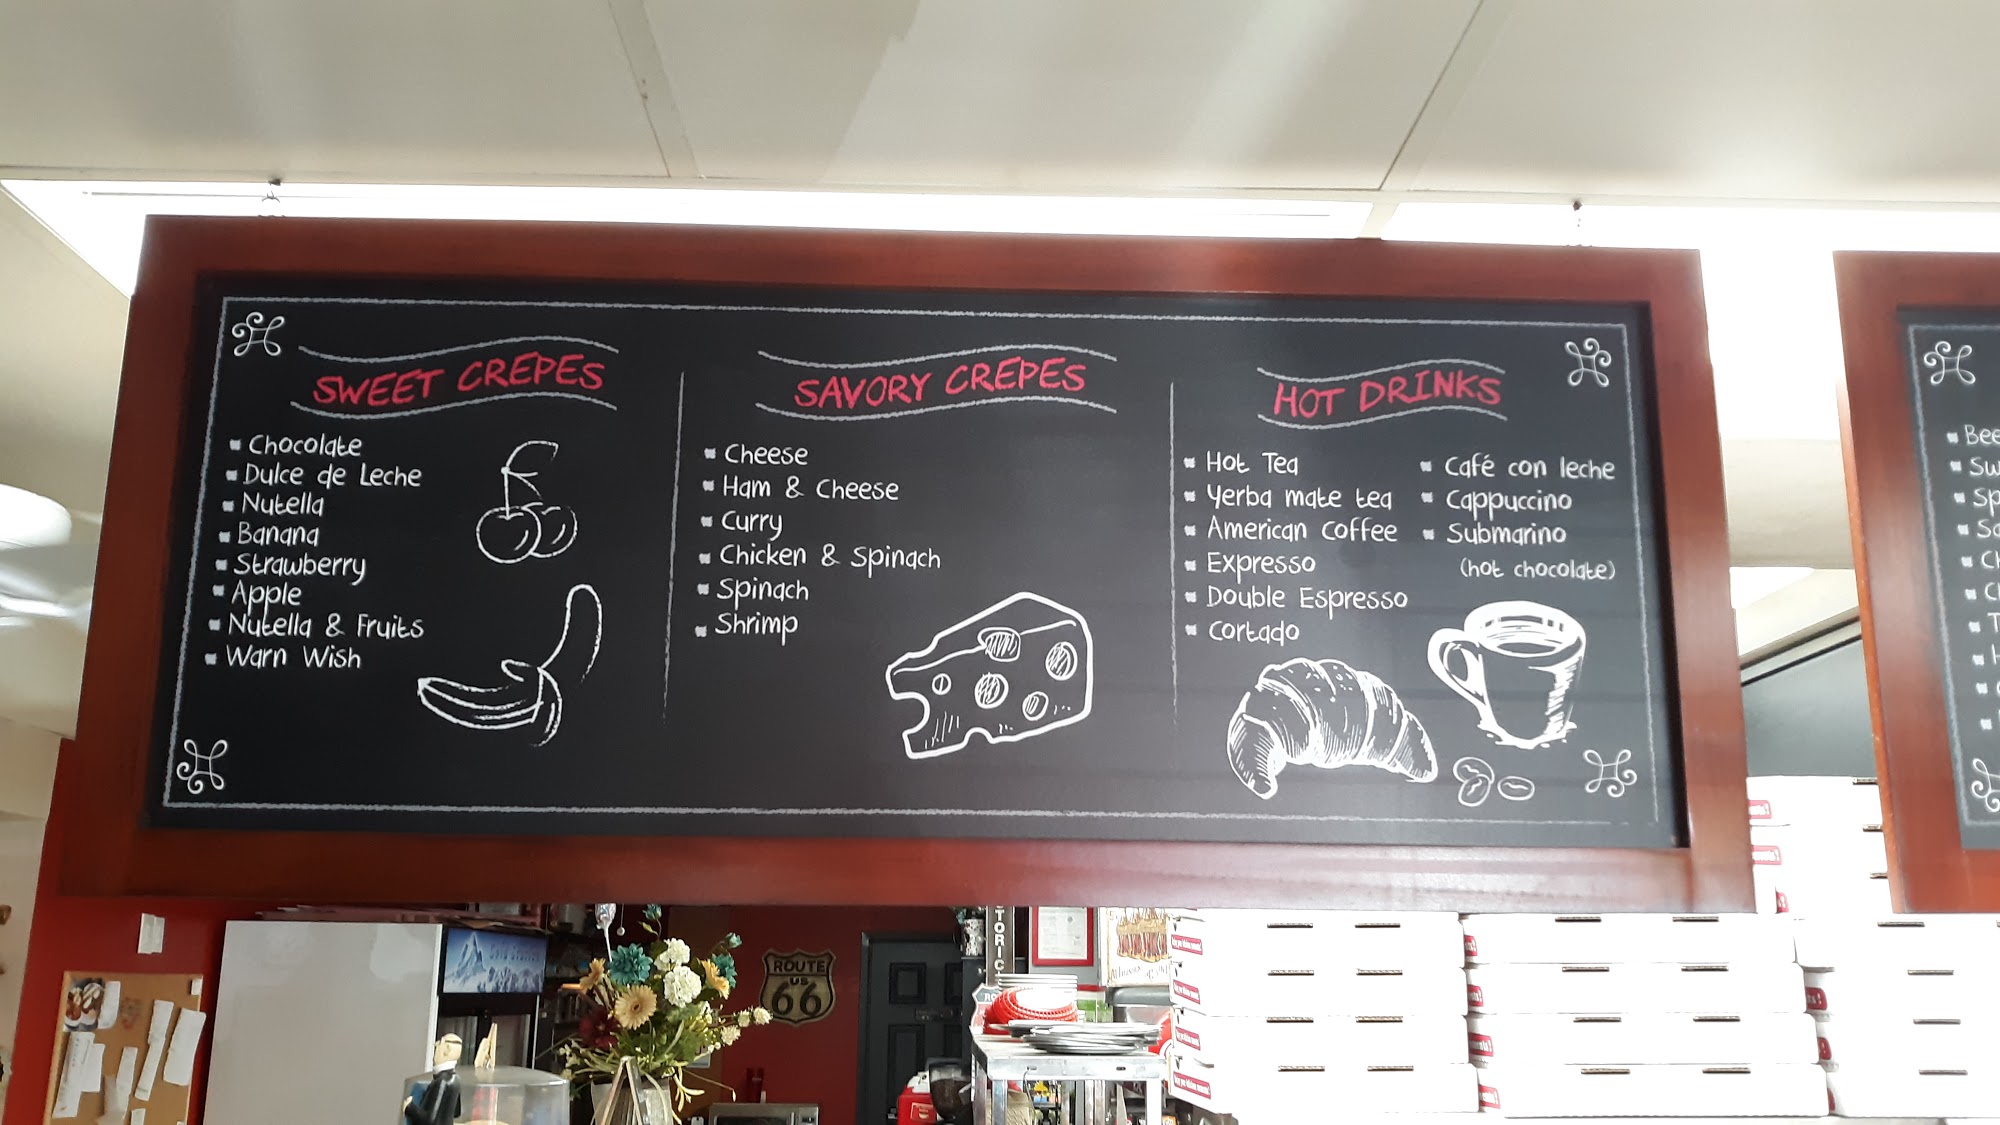 SWEET CREPES
Chocolate
Dulce de Leche
Nutella
Banana
Strawberry
Apple
Nutella & Fruits
Warn Wish
SAVORY CREPES
Cheese
Ham & Cheese
Curry
Chicken & Spinach
Spinach
Shrimp
HOT DRINKS
Hot Tea
Yerba mate tea
American Coffee
Expresso
Double Espresso
Cortado
Café con leche
Cappuccino
Submarino
(hot chocolate)
ROUTE
US
66